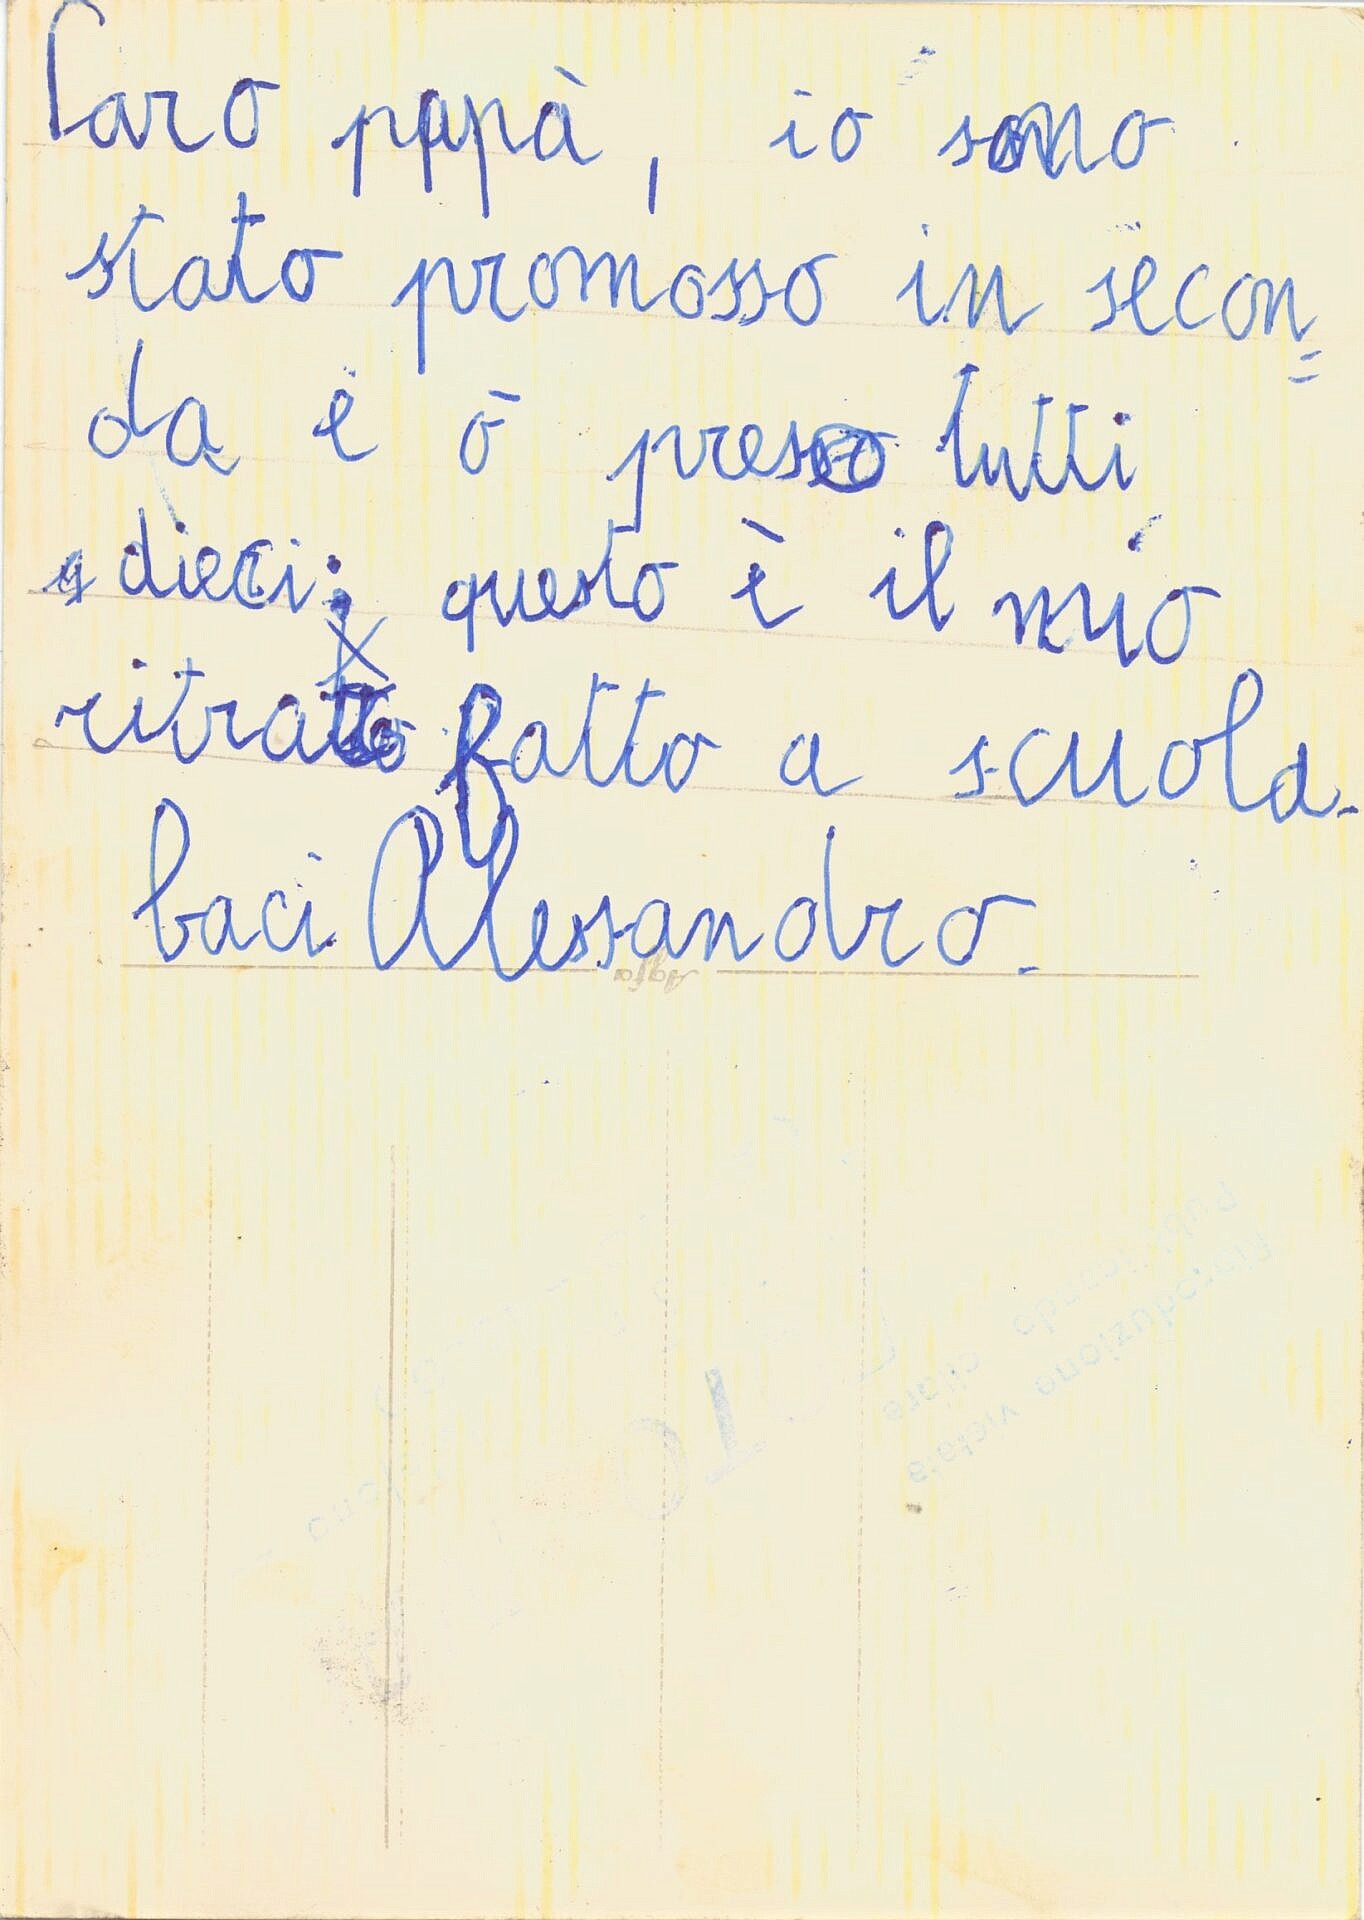 Caro papà, io sono
stato promosso in secon=
da e ò preso tutti
dieci; questo è il mio
ritratto fatto a scuola.
baci Alessandro.
Agfa
riproduzione vietata